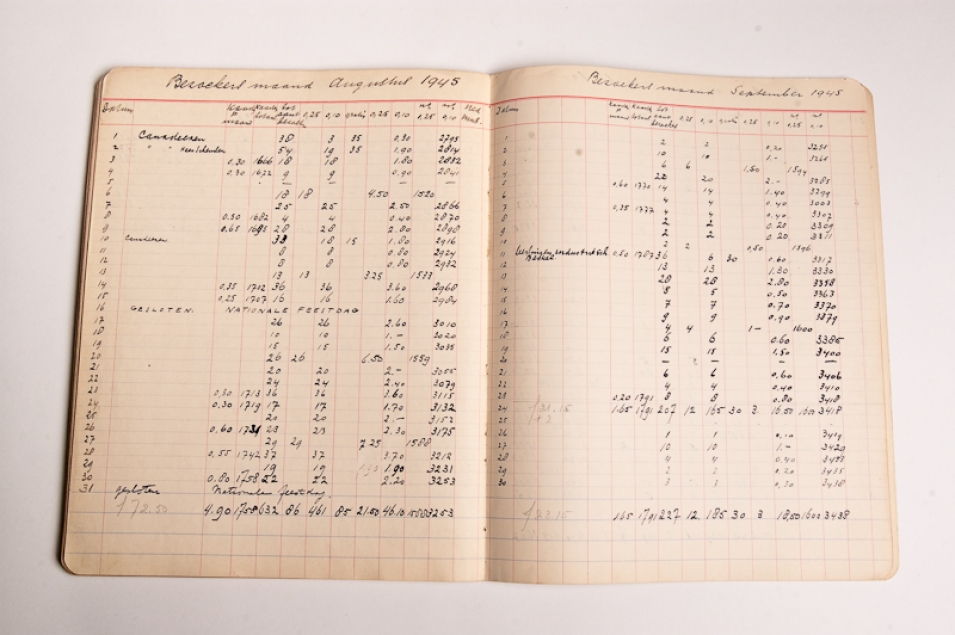 Bezoekers maand Augustus 1945
Datum 0,25 0,10 gratis 0,25 0,10 0,25 0,10
1 Canadeezen 38 3 35 0,30 2795
2 " " 54 19 35 1.90 2814
3 0,30 1666 18 18 1.80 2832
4 0,30 1672 9 9 0,90 2841
5 — — — —
6 18 18 4.50 1520
7 25 25 2.50 2866
8 0,30 1682 4 4 0.40 2870
9 0,65 1695 28 28 2.80 2898
10 33 18 15 1.80 2916
11 8 8 0.80 2924
12 8 8 0.80 2932
13 13 13 3.25 1533
14 0,35 1702 36 36 3.60 2968
15 0,25 1707 16 16 1.60 2984
16 GESLOTEN. NATIONALE FEESTDAG
17 26 26 2.60 3010
18 10 10 1.— 3020
19 15 15 1.50 3035
20 26 26 6.50 1559
21 20 20 2.— 3055
22 24 24 2.40 3079
23 0,30 1713 36 36 3.60 3115
24 0,30 1719 17 17 1.70 3132
25 20 20 2.— 3152
26 0,60 1731 23 23 2.30 3175
27 29 29 7.25 1588
28 0,55 1742 37 37 3.70 3212
29 19 19 1.90 3231
30 0.80 1758 22 22 2.20 3253
31 gesloten Nationale feestdag.
f 72.50 4.90 1758 632 86 461 85 21.50 46.10 1588 3253
Bezoekers maand September 1945
Datum 0,25 0,10 gratis 0,25 0,10
1 2 2 0,20
2 10 10 1.—
3 6 6 1,50 1594
4 22 20 2.— 3285
5 0,60 1770 14 14 1.40 3299
6 4 4 0.40
7 0,35 1777 4 4 0.40 3307
8 2 2 0.20 3309
9 2 2 0.20 3311
10 2 2 0,50 1596
11 0,50 1787 36 6 30 0.60 3317
12 13 13 1.30 3330
13 28 28 2.80 3358
14 5 5 0,50 3363
15 7 7 0,70 3370
16 9 9 0,90 3379
17 4 4 1— 1600
18 6 6 0.60 3385
19 15 15 1,50 3400
20 — — — —
21 6 6 0,60 3406
22 4 4 0.40 3410
23 0,20 1791 8 8 0.80 3418
24 1.65 1791 207 12 165 30 3 3418
25
26 1 1 0,10 3419
27 10 10 1.— 3429
28 4 4 0.40 3433
29 2 2 0.20 3435
30 3 3 0,30 3438
1.65 1791 227 12 185 30 3 18,50 1600 3438